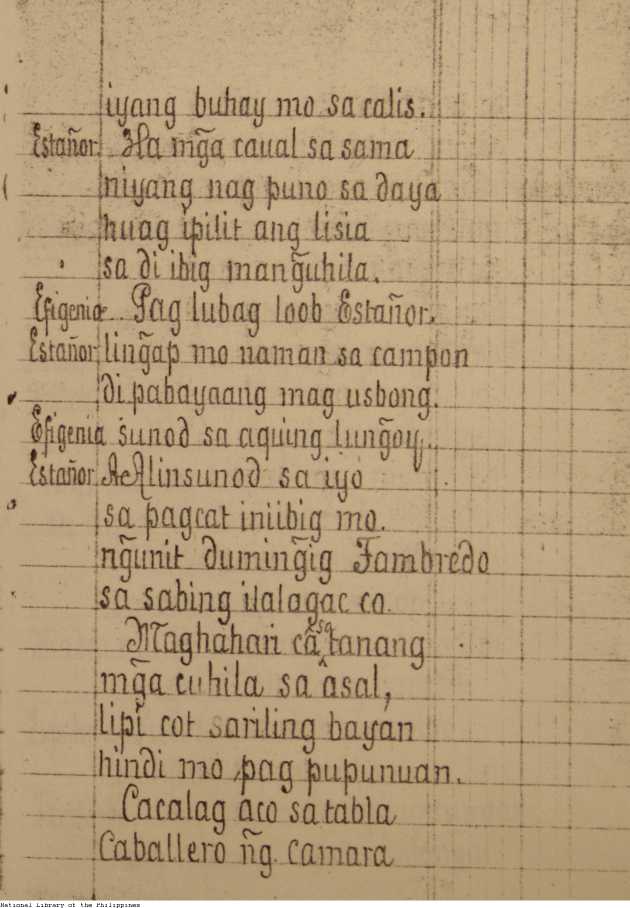 iyang buhay mo sa calis.
Estañor. Ha mg̃a caual sa sama
niyang nag puno sa daya
huag ipilit ang lisia
sa di ibig mang̃uhila.
Efigenia. Pag lubag loob Estañor.
Estañor. ling̃ap mo naman sa campon
di pabayaang mag usbong.
Efigenia sunod sa aquing lung̃oy.
Estañor. Alinsunod sa iyo
sa pagcat iniibig mo.
ng̃unit duming̃ig Fambredo
sa sabing ilalagac co.
Maghahari ca sa tanang
mg̃a cuhila sa asal,
lipi cot sariling bayan
hindi mo pag pupunuan.
Cacalag aco sa tabla
Caballero ñg. Camara
National Library of the Philippines